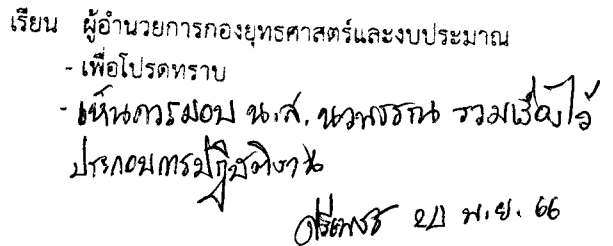 เรียน ผู้อำนวยการกองยุทธศาสตร์และงบประมาณ
- เพื่อโปรดทราบ
- เห็นควรมอบ น.ส. นวพรรณ รวมเรื่องไว้
ประกอบการปฏิบัติงาน
พ.ย. 66